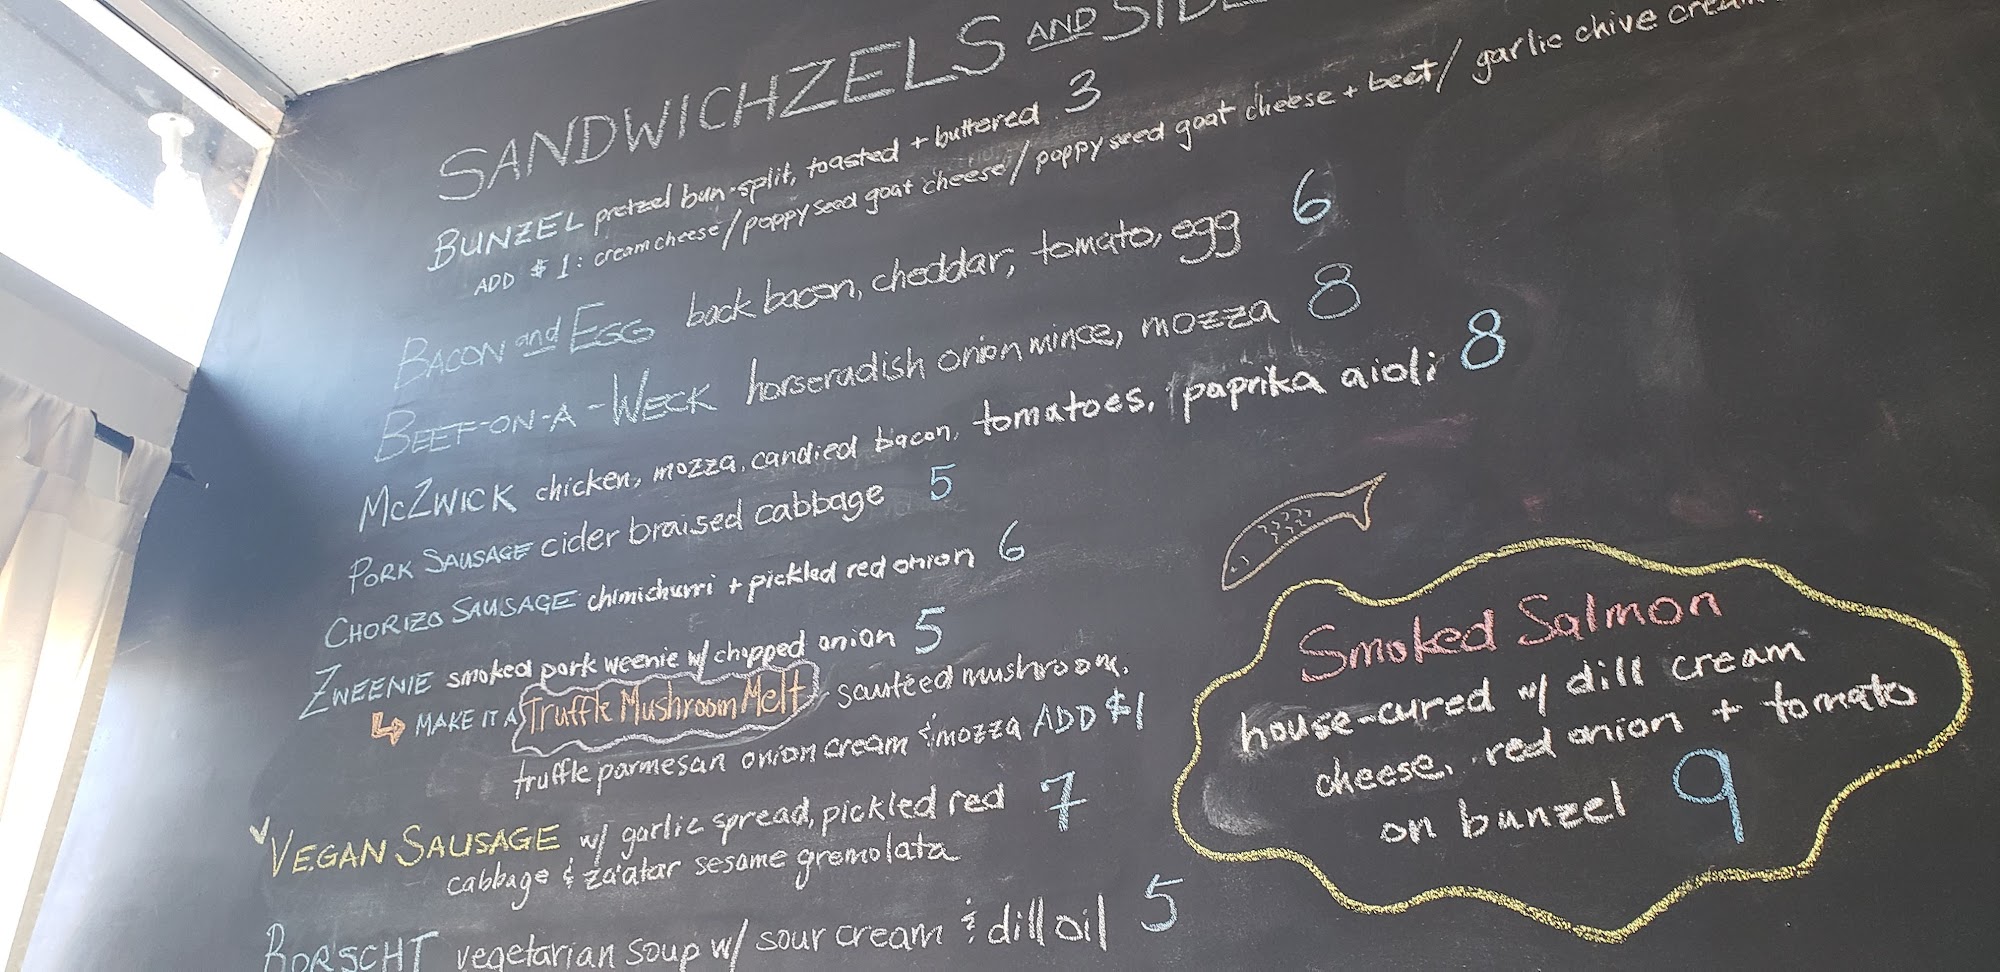 SANDWICHZELS AND
BUNZEL pretzel bun-split, toasted + buttered 3
ADD $1: cream cheese/poppyseed goat cheese/poppyseed goat cheese + beet/garlic chive
BACON and EGG back bacon, cheddar, tomato, egg 6
BEEF-ON-A-WECK horseradish onion mince, mozza 8
MCZWICK chicken, mozza, candied bacon, tomatoes, paprika aioli 8
PORK SAUSAGE cider braised cabbage 5
CHORIZO SAUSAGE chimichurri + pickled red onion 6
ZWEENIE smoked pork weenie w/ chopped onion 5
MAKE IT A Truffle Mushroom Melt sautéed mushroom,
truffle parmesan onion cream & mozza ADD $1
VEGAN SAUSAGE w/ garlic spread, pickled red 7
cabbage & za'atar sesame gremolata
BORSCHT vegetarian soup w/ sour cream & dill oil 5
Smoked Salmon
house-cured w/ dill cream
cheese, red onion + tomato
on bunzel 9